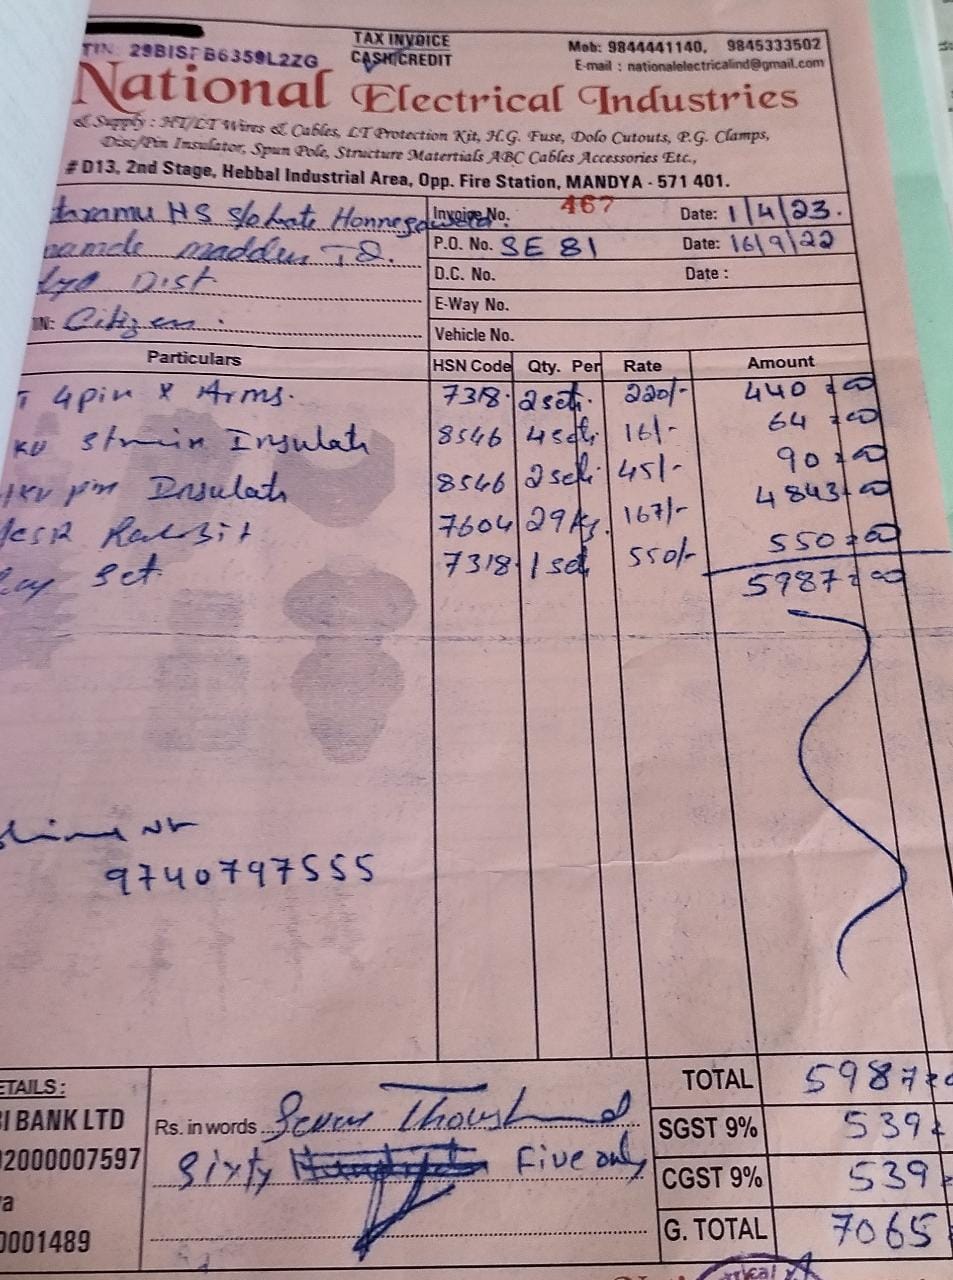 TIN: 29BISFB6359L2ZG
TAX INVOICE
CASH/CREDIT
Mob: 9844441140, 9845333502
E-mail : nationalelectricalind@gmail.com
National Electrical Industries
& Supply : HT/LT Wires & Cables, LT Protection Kit, H.G. Fuse, Dolo Cutouts, P.G. Clamps,
Disc/Pin Insulator, Spun Pole, Structure Matertials ABC Cables Accessories Etc.,
# D13, 2nd Stage, Hebbal Industrial Area, Opp. Fire Station, MANDYA - 571 401.
HS S/o Late
Invoice No. 467 Date: 1/4/23.
maddur TQ.
P.O. No. SE 81 Date: 16/9/22
Dist.
D.C. No. Date :
E-Way No.
IN: Citizen :
Vehicle No.
Particulars HSN Code Qty. Per Rate Amount
4 pin X Arms. 7318. 2 set. 220/- 440=00
KV Strain Insulat 8546 4 set. 16/- 64=00
KV pin Insulat 8546 2 set. 45/- 90=00
Rabbit 7604 29 Kg. 167/- 4843=00
Set 7318. 1 set 550/- 550=00
5987=00
9740797555
ETAILS :
BI BANK LTD
02000007597
a
0001489
Rs. in words Seven Thousand
Sixty Five only
TOTAL 5987=0
SGST 9% 539
CGST 9% 539
G. TOTAL 7065